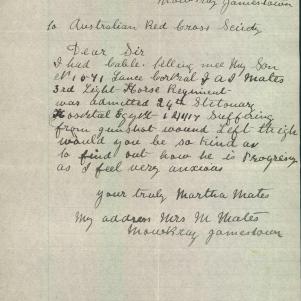 Mowkray Jamestown
to Australian Red Cross Scirdy
Dear Sir
I had Cable telling me My Son
No 1071 Lance Corporal J A I Mates
3rd Light Horse Regiment
was admitted 24th Stitonary
Hosstial Egypt Suffering
from gunshot wound Left thigh
would you be so kind as
to find out how he is Progresng
as I feel very anxious
your truly Martha Mates
My address Mrs M Mates
Mowkray Jamestown